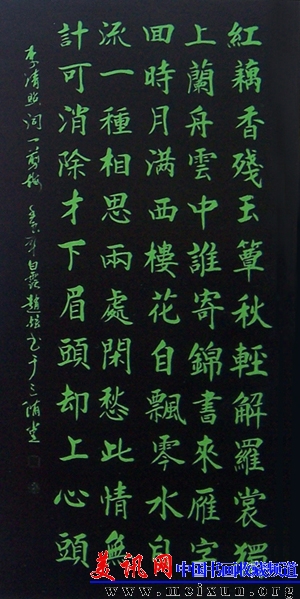 紅藕香殘玉簟秋輕解羅裳獨
上蘭舟雲中誰寄錦書來雁字
囬時月满西樓花自飄零水自
流一種相思兩處閑愁此情無
計可消除才下眉頭却上心頭
李清照词一剪梅 年白露趙书于三堂
美讯网 中国书画收藏频道
www.meixun.org